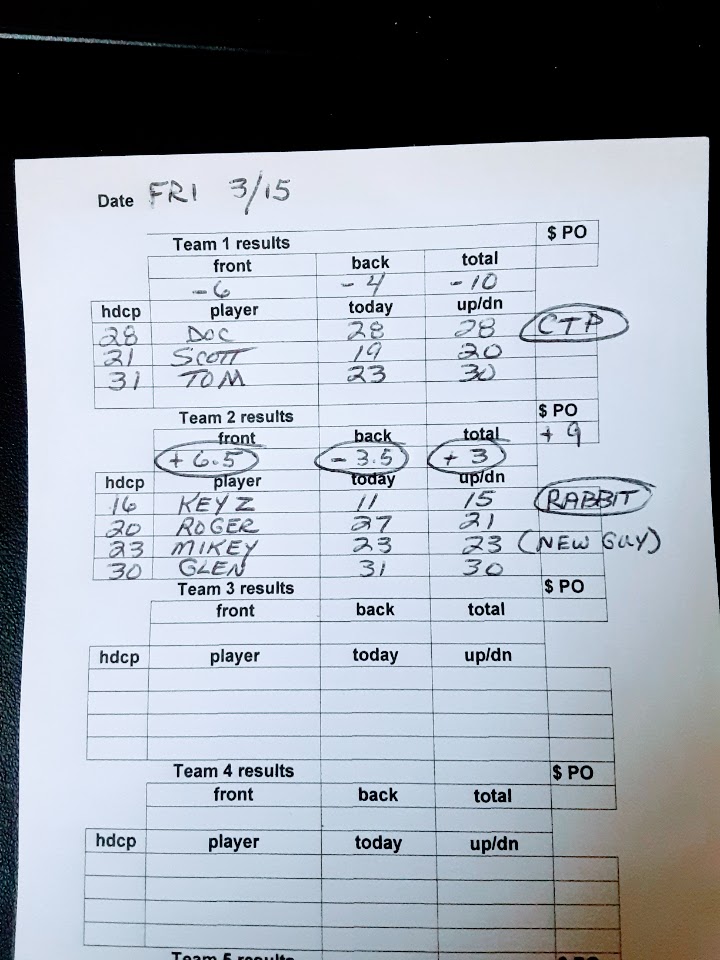 Date FRI 3/15
Team 1 results $ PO
front back total
-6 -4 -10
hdcp player today up/dn
28 DOC 28 28 CTP
21 SCOTT 19 20
31 TOM 23 30
Team 2 results $ PO
front back total +9
+6.5 -3.5 +3
hdcp player today up/dn
16 KEYZ 11 15 RABBIT
20 ROGER 27 21
23 MIKEY 23 23 (NEW GUY)
30 GLEN 31 30
Team 3 results $ PO
front back total
hdcp player today up/dn
Team 4 results $ PO
front back total
hdcp player today up/dn
Team 5 results $ PO